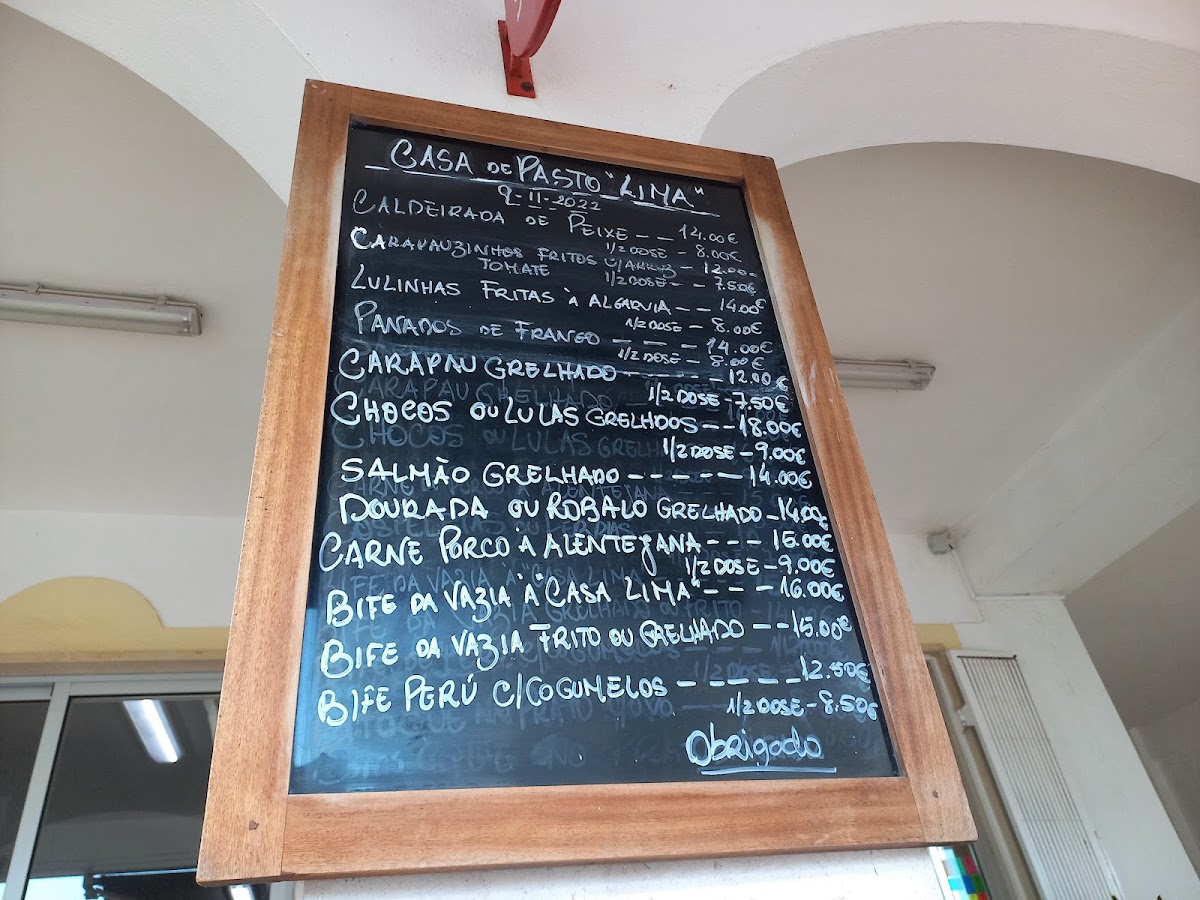 CASA DE PASTO "LIMA"
9-11-2022
CALDEIRADA DE PEIXE -- 14.00€
1/2 DOSE - 8.00€
CARAPAUZINHOS FRITOS C/ARROZ - 12.00
TOMATE 1/2 DOSE - 7.50€
LULINHAS FRITAS À ALGARVIA -- 14.00€
1/2 DOSE - 8.00€
PANADOS DE FRANGO --- 14.00€
1/2 DOSE - 8.00€
CARAPAU GRELHADO ---- 12.00€
1/2 DOSE - 7.50€
CHOCOS OU LULAS GRELHDOS -- 18.00€
1/2 DOSE - 9.00€
SALMÃO GRELHADO ----- 14.00€
DOURADA OU ROBALO GRELHADO - 14.00€
CARNE PORCO À ALENTEJANA --- 15.00€
1/2 DOSE - 9.00€
BIFE DA VAZIA À "CASA LIMA" --- 16.00€
BIFE DA VAZIA FRITO OU GRELHADO -- 15.00€
BIFE PERÚ C/COGUMELOS ----- 12.50€
1/2 DOSE - 8.50€
Obrigado